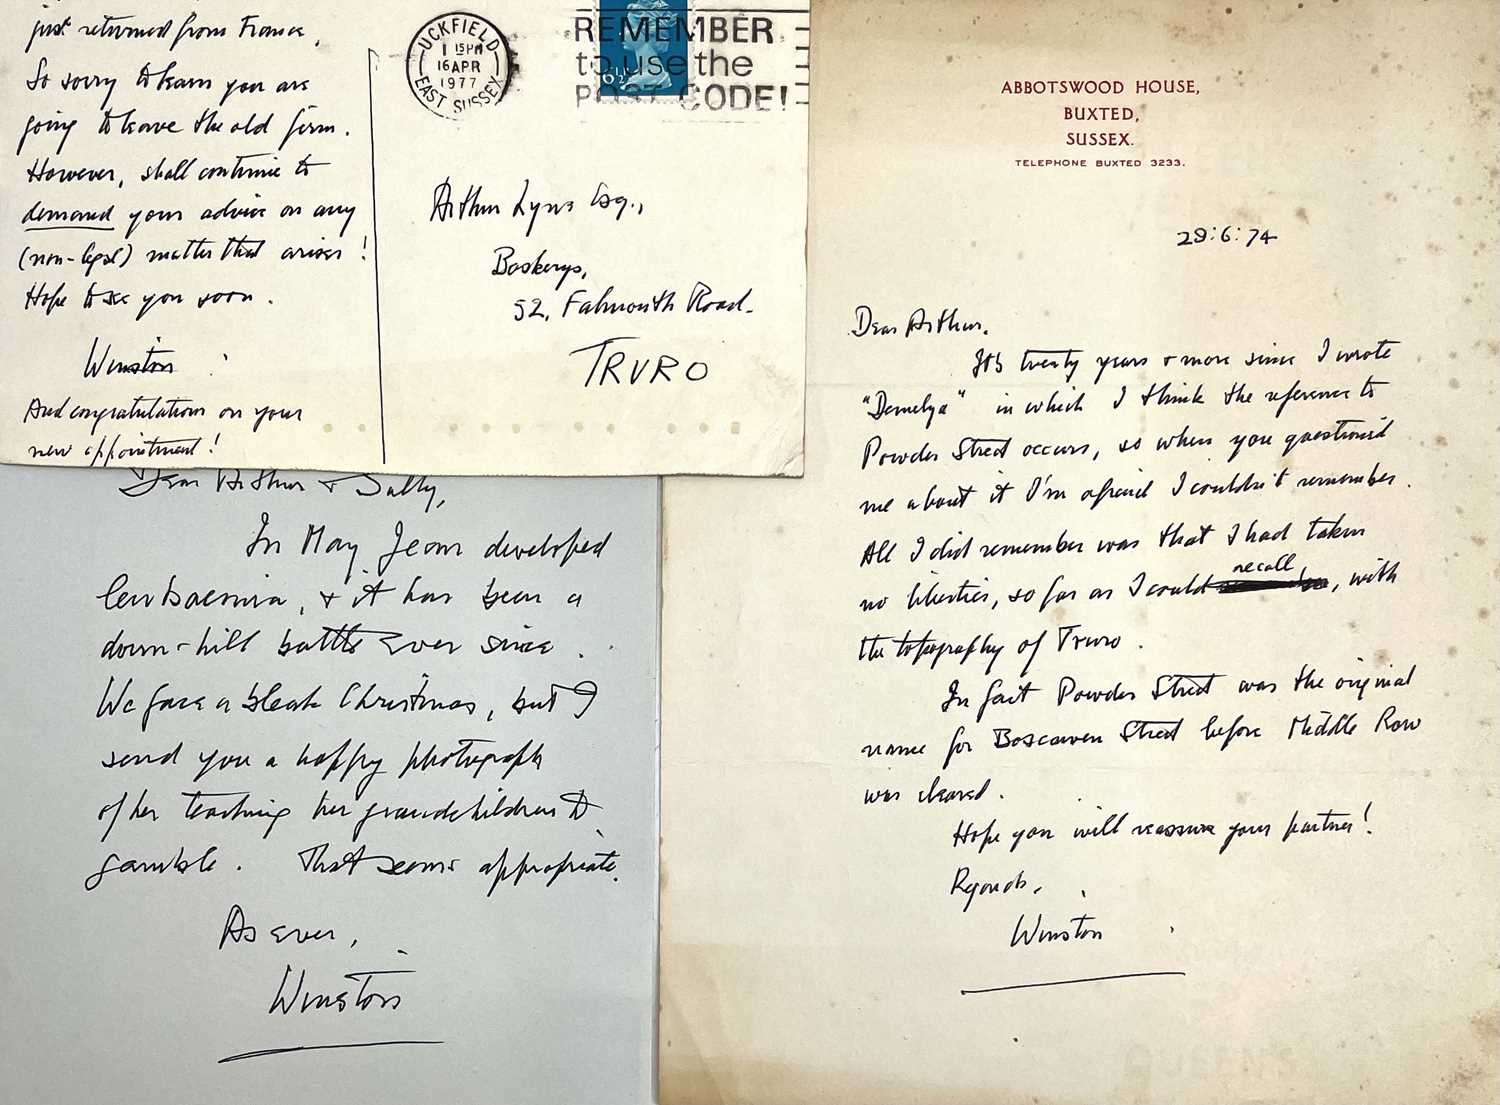 just returned from France,
So sorry to learn you are
going to leave the old firm.
However, shall continue to
demand your advice on any
(non-legal) matter that arises!
Hope to see you soon.
Winston
And congratulations on your
new appointment!
UCKFIELD
1 15PM
16 APR
1977
EAST SUSSEX
REMEMBER
to use the
POST CODE!
6½
Arthur Lyne Esq.,
52, Falmouth Road.
TRURO
Dear Arthur & Sally,
In May Jean developed
leukaemia, & it has been a
down-hill battle ever since.
We face a bleak Christmas, but I
send you a happy photograph
of her teaching her grandchildren to
gamble. That seems appropriate.
As ever,
Winston
ABBOTSWOOD HOUSE,
BUXTED,
SUSSEX.
TELEPHONE BUXTED 3233.
29:6:74
Dear Arthur,
It's twenty years & more since I wrote
"Demelza" in which I think the reference to
Powder Street occurs, so when you questioned
me about it I'm afraid I couldn't remember.
All I did remember was that I had taken
no liberties, so far as I could recall, with
the topography of Truro.
In fact Powder Street was the original
name for Boscawen Street before Middle Row
was cleared.
Hope you will reassure your partner!
Regards,
Winston